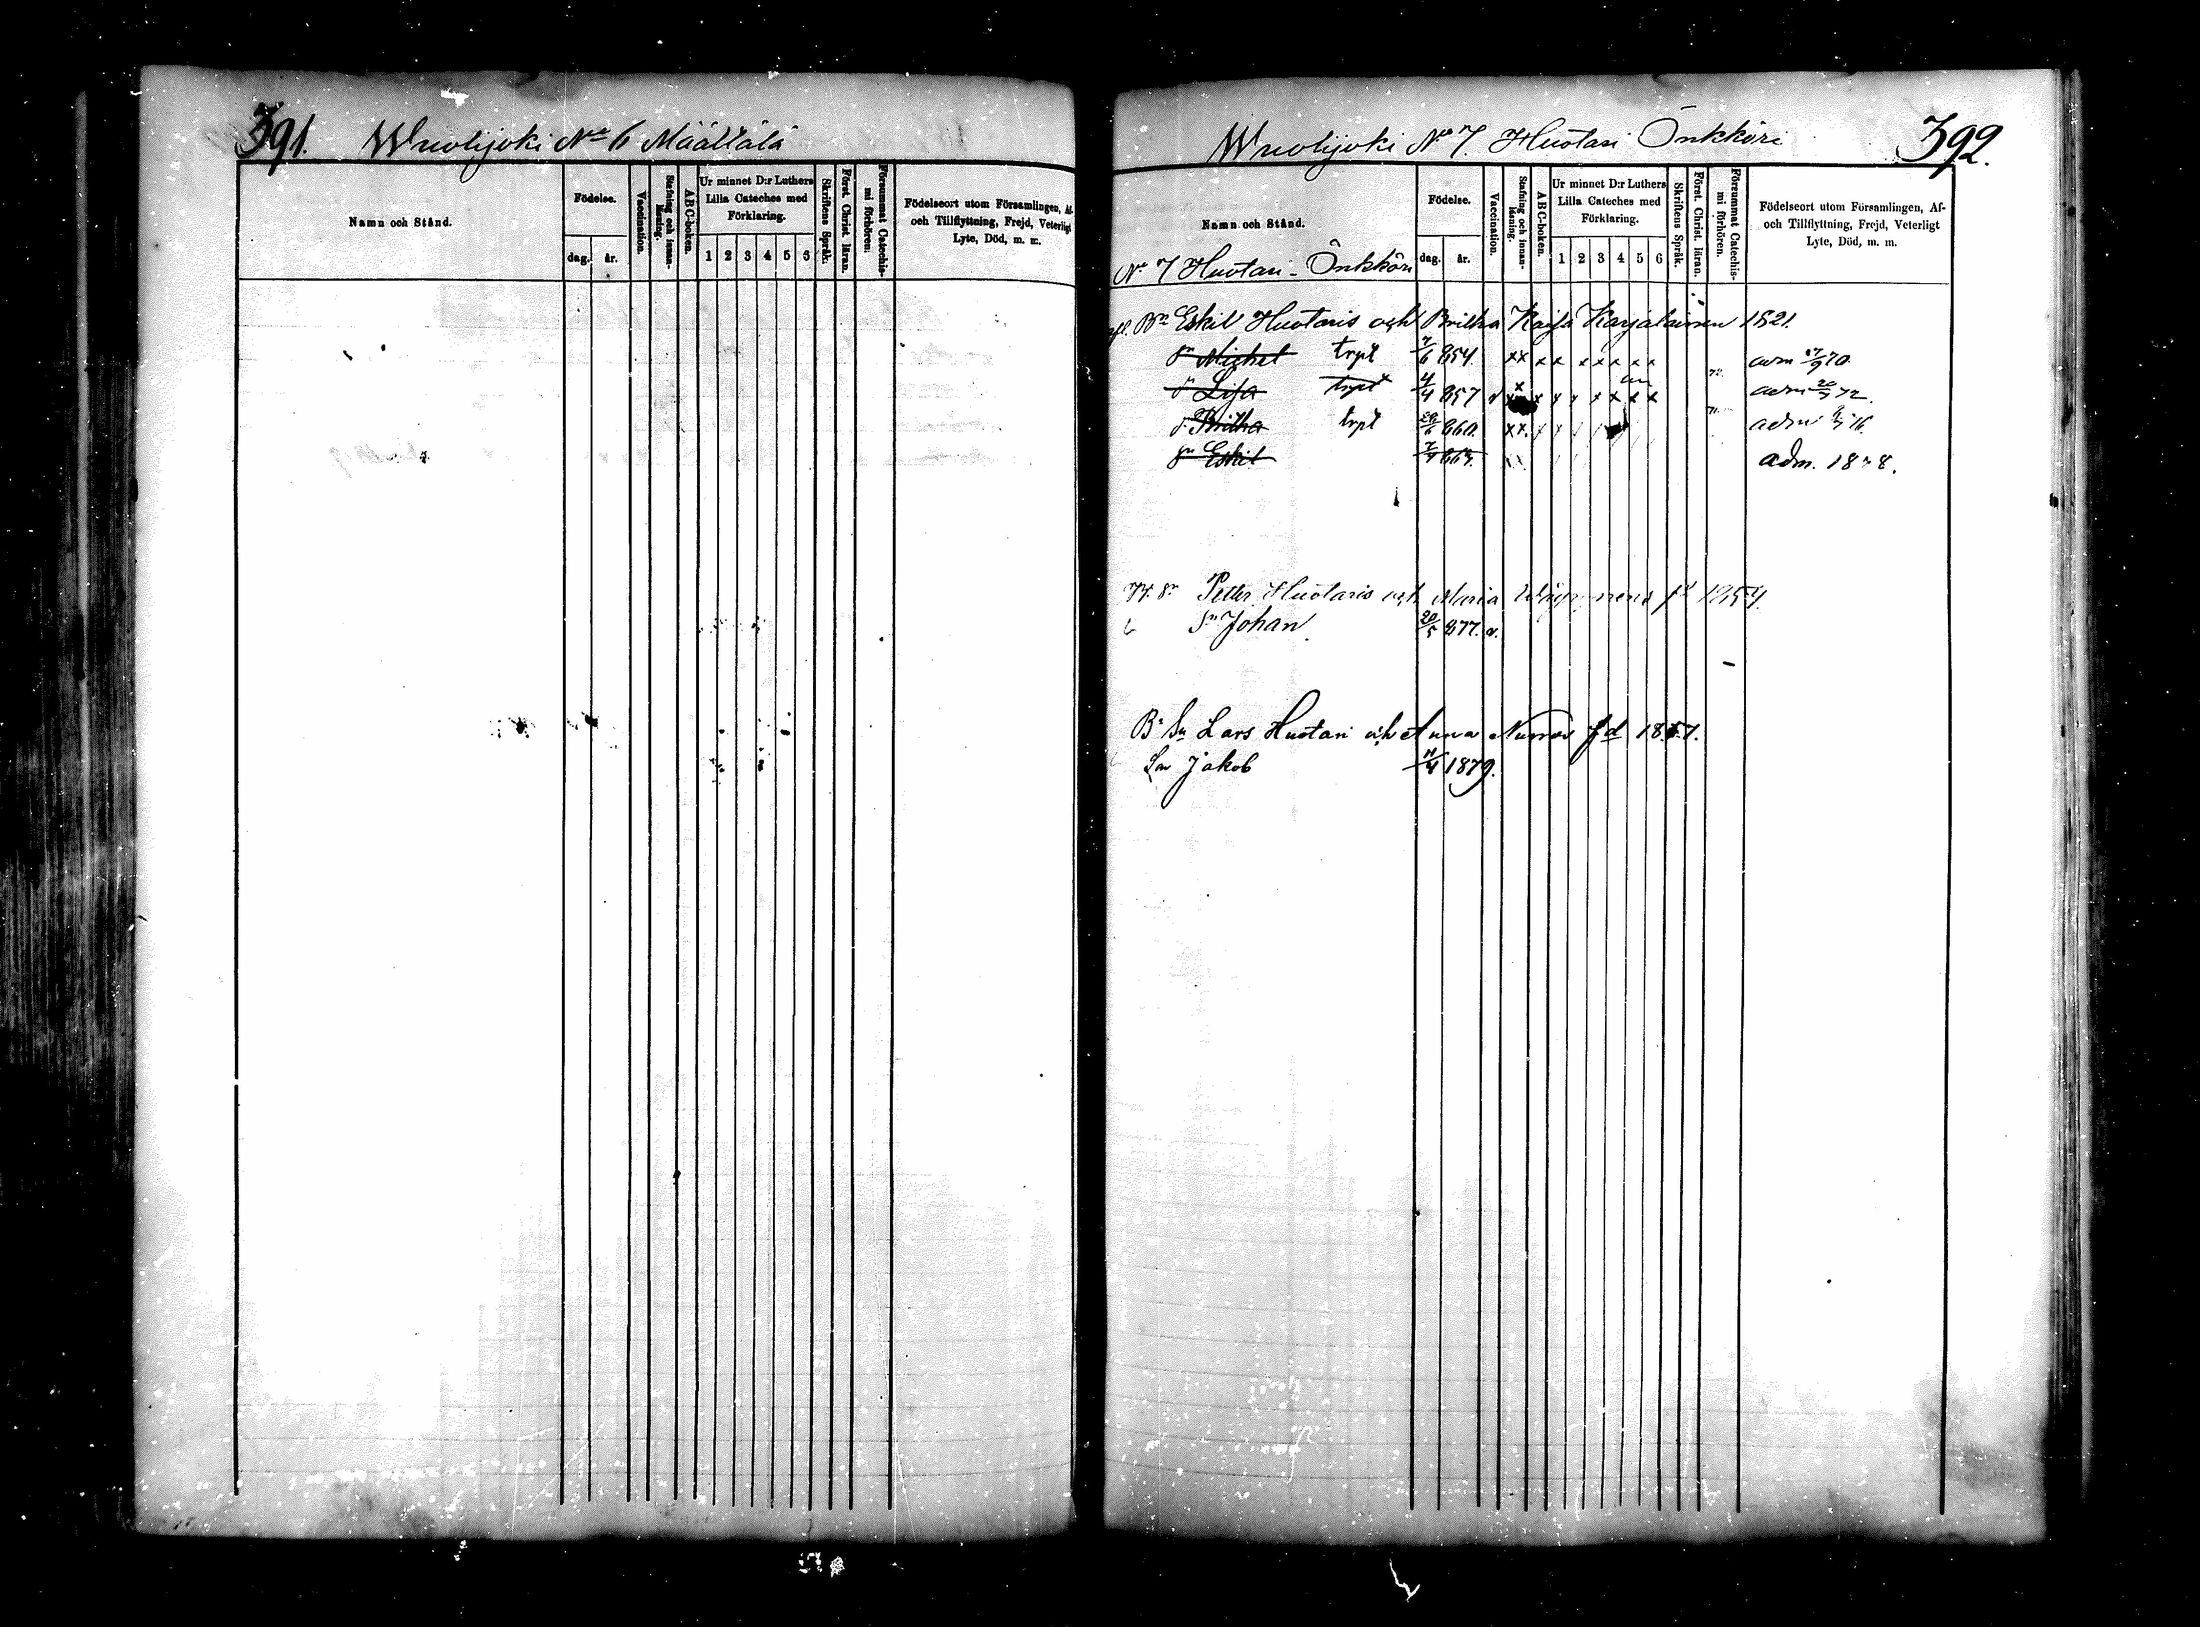 391. Wuolijoki No 6 Määttälä
Namn och Stånd.
Födelse.
dag. år.
Vaccination.
Stafning och innan-läsning.
ABC-boken.
Ur minnet D:r Luthers
Lilla Cateches med
Förklaring.
1 2 3 4 5 6
Skriftens Språk.
Först. Christ. läran.
Försummat Catechis-
mi förhören.
Födelseort utom Församlingen, Af-
och Tillflyttning, Frejd, Veterligt
Lyte, Död, m. m.
Wuolijoki No 7. Huotari Önkköri 392.
Namn och Stånd.
Födelse.
dag. år.
Vaccination.
Stafning och innan-läsning.
ABC-boken.
Ur minnet D:r Luthers
Lilla Cateches med
Förklaring.
1 2 3 4 5 6
Skriftens Språk.
Först. Christ. läran.
Försummat Catechis-
mi förhören.
Födelseort utom Församlingen, Af-
och Tillflyttning, Frejd, Veterligt
Lyte, Död, m. m.
No 7 Huotari - Önkköri
Bn Eskil Huotaris och Britha Kaisa Karjalainen 1821.
sn Michel trpt 7/6 854. xx x x x x x x x adm 70
dr Lisa trpt 4/4 857 v x x x x x x x x 72. adm 20/ 72.
dr Britha trpt 29/6 860. xx. adm 76.
sn Eskil 7/7 863. adm. 1878.
Petter Huotaris och Maria fd 1854.
Sn Johan 20/5 877. v.
Bn Sn Lars Huotari och Anna fd 1857.
Son Jakob 11/4 1879.